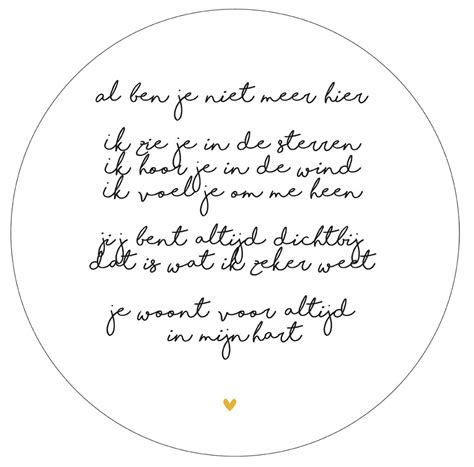 al ben je niet meer hier
ik zie je in de sterren
ik hoor je in de wind
ik voel je om me heen
jij bent altijd dichtbij
dat is wat ik zeker weet
je woont voor altijd
in mijn hart